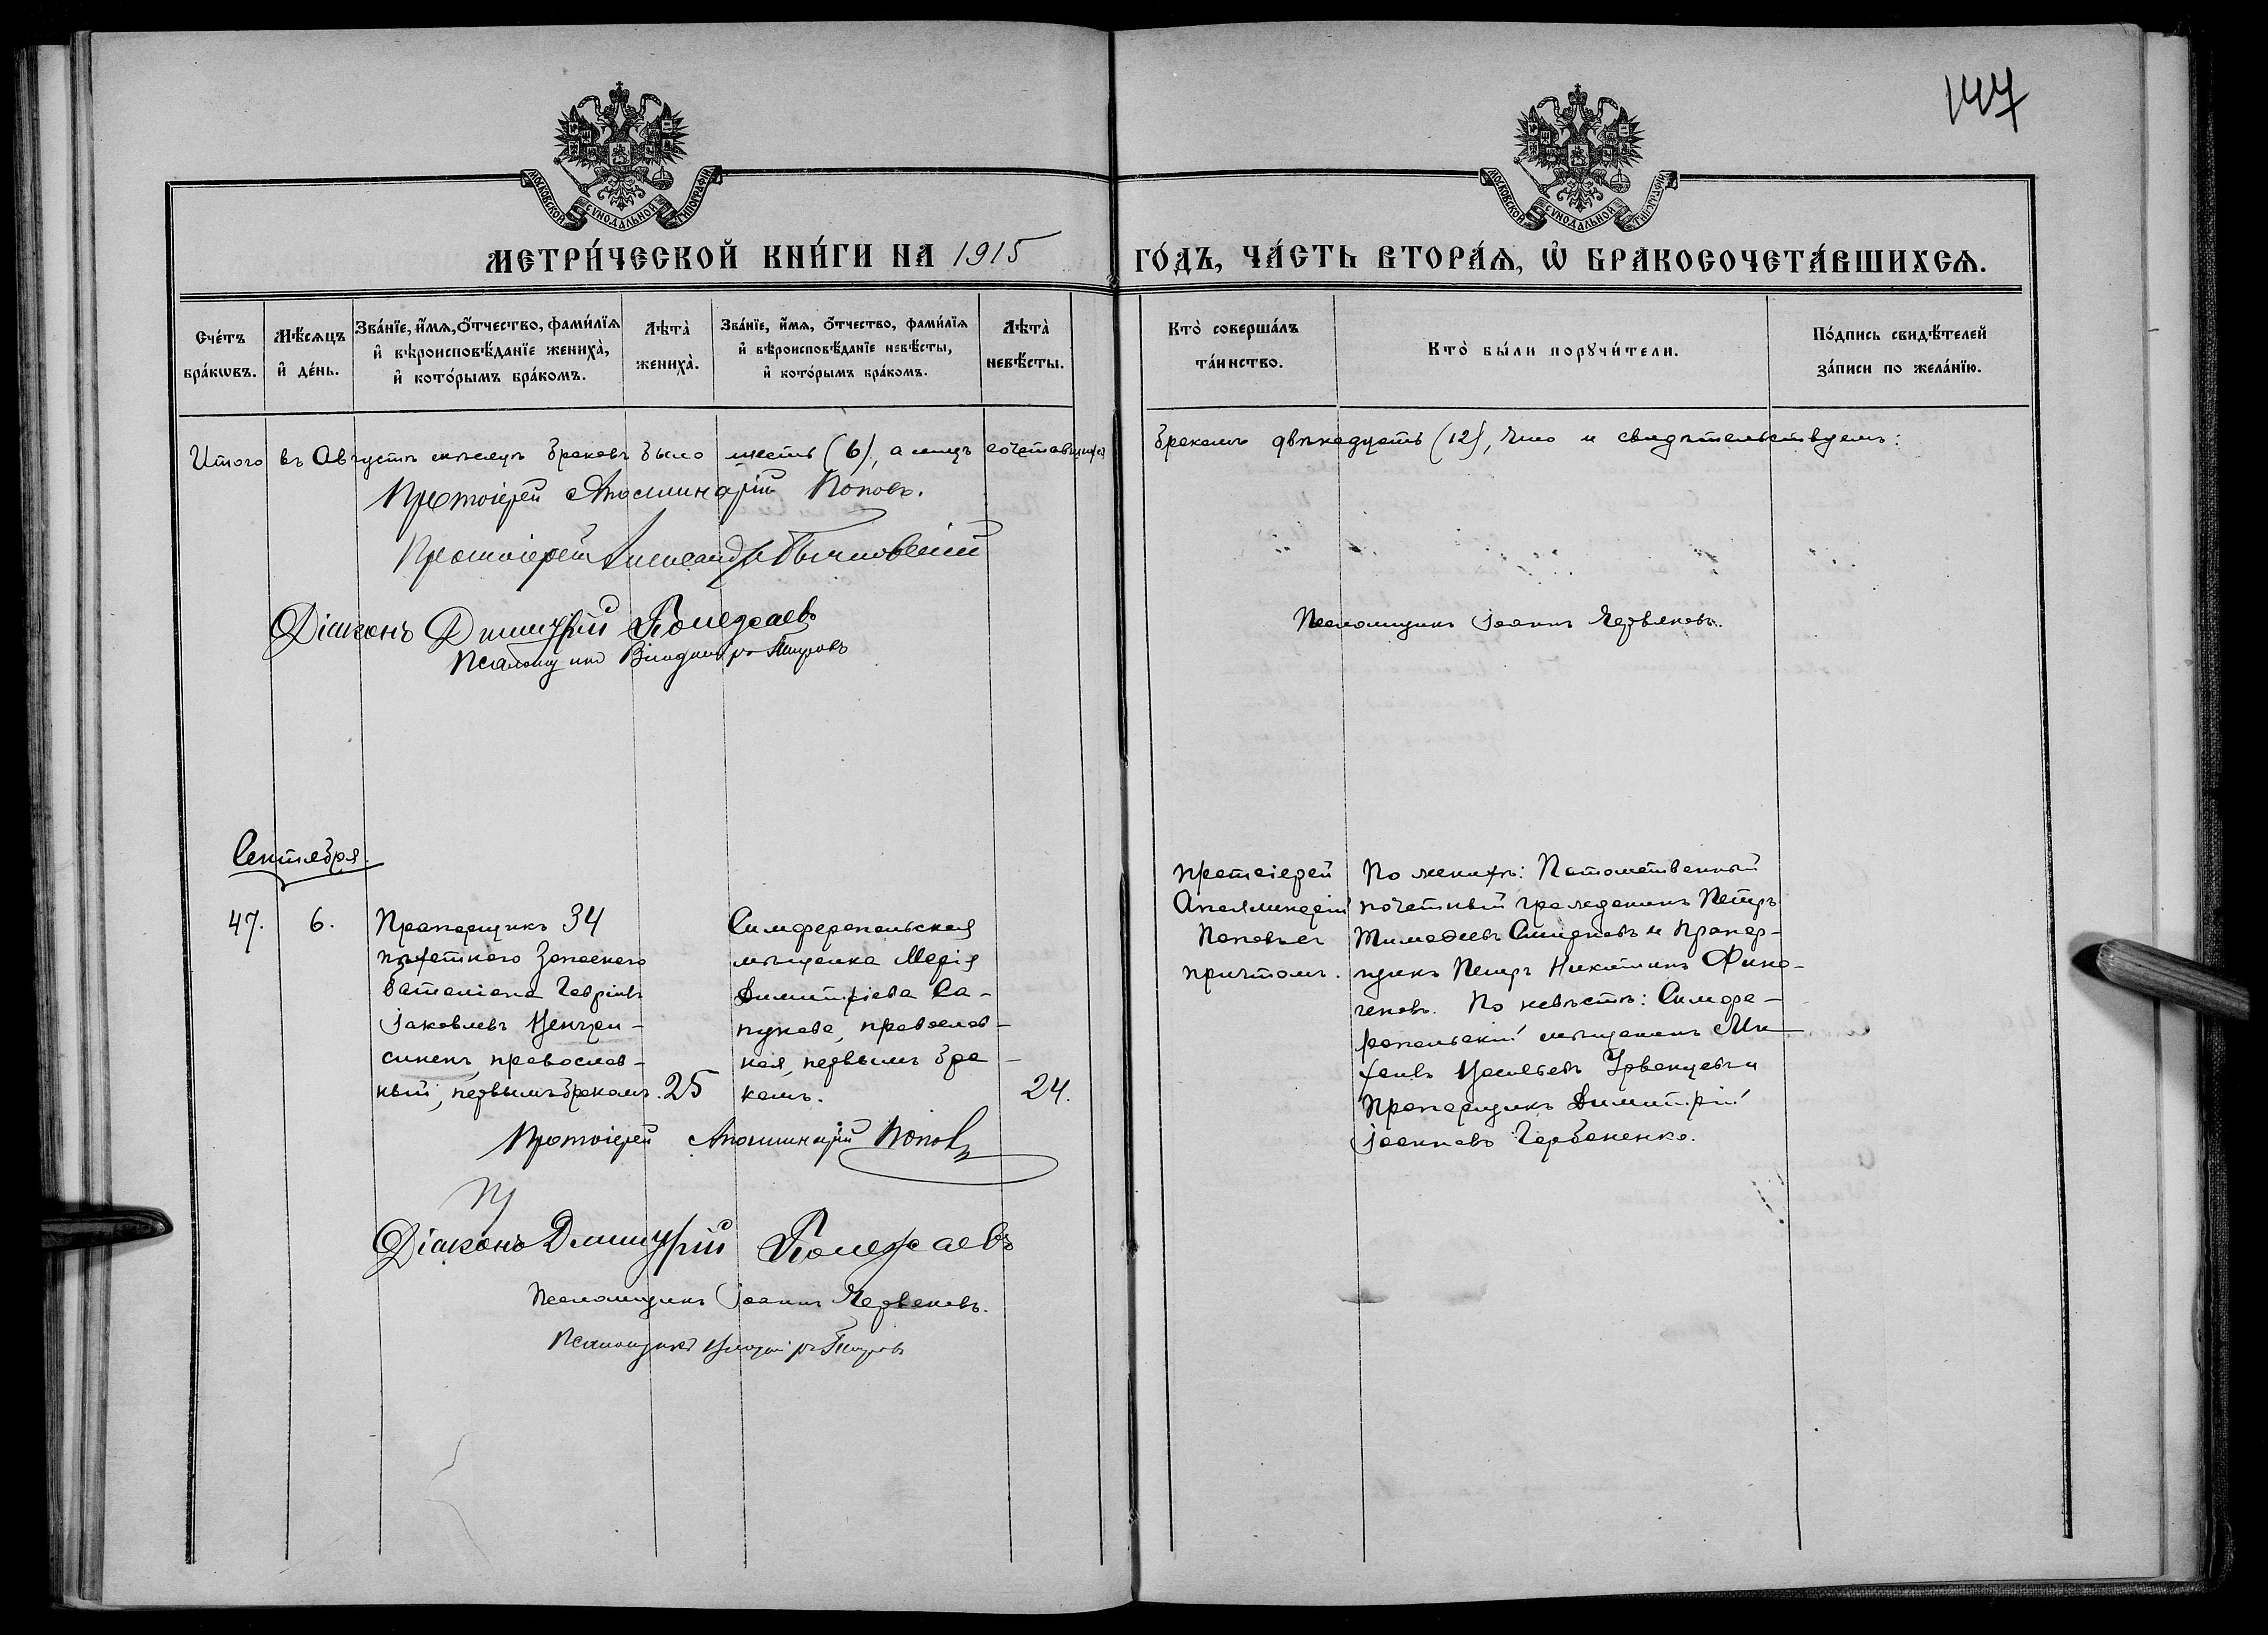 147
МОСКОВСКОЙ СѴНОДАЛЬНОЙ ТИПОГРАФІИ
МОСКОВСКОЙ СѴНОДАЛЬНОЙ ТИПОГРАФІИ
МЕТРИ́ЧЕСКОЙ КНИ́ГИ НА 1915 ГО́ДЪ, ЧА́СТЬ ВТОРА́Ѧ, Ѽ БРАКОСОЧЕТА́ВШИХСѦ.
Сче́тъ бра́кѡвъ.
Мѣ́сѧцъ и҆ де́нь.
Зва́нїе, и҆́мѧ, ѻ҆́тчество, фами́лїѧ
и҆ вѣроисповѣ́данїе жениха̀,
и҆ кото́рымъ бра́комъ.
Лѣта̀ жениха̀.
Зва́нїе, и҆́мѧ, ѻ҆́тчество, фами́лїѧ
и҆ вѣроисповѣ́данїе невѣ́сты,
и҆ кото́рымъ бра́комъ.
Лѣта̀ невѣ́сты.
Кто̀ соверша́лъ та́инство.
Кто̀ бы́ли порꙋчи́тели.
По́дпись свидѣ́телей
за́писи по жела́нїю.
Итого въ Августѣ мѣсяцѣ браковъ было шесть (6), а лицъ сочетавшихся
бракомъ двѣнадцать (12), что и свидѣтельствуемъ:
Протоіерей Аполлинарій Поповъ.
Протоіерей Александръ
Діаконъ Димитрій Полежаевъ
Псаломщикъ Владиміръ
Псаломщикъ Іоаннъ Червяковъ.
Сентября.
47.
6.
Прапорщикъ 34
пѣхотнаго запаснаго
баталіона Гавріилъ
Іаковлевъ
синенъ, православ-
ный, первымъ бракомъ.
25
Симферопольская
мѣщанка Марія
Димитріева Са-
пунова, православ-
ная, первымъ бра-
комъ.
24.
Протоіерей
Аполлинарій
Поповъ съ
причтомъ.
По женихѣ: Потомственный
почетный гражданинъ Петръ
Тимоѳеевъ Смирновъ и прапор-
щикъ Петръ Никитинъ Фино-
геновъ. По невѣстѣ: Симфе-
ропольскій мѣщанинъ Ми-
хаилъ Васильевъ Урванцевъ и
Прапорщикъ Димитрій
Іоанновъ Горбаненко.
Протоіерей Аполлинарій Поповъ
Діаконъ Димитрій Полежаевъ
Псаломщикъ Іоаннъ Червяковъ.
Псаломщикъ Владиміръ